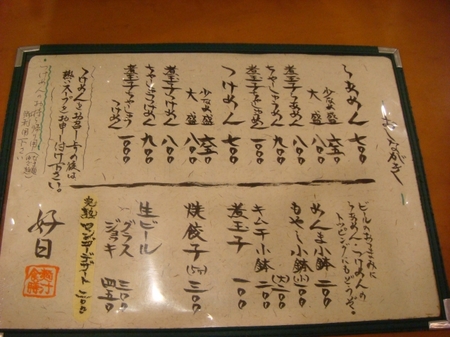 おしながき
らあめん 七〇〇
少なめ 六五〇
大盛 八〇〇
煮玉子らあめん 八〇〇
ちゃーしゅうめん 九〇〇
煮玉子ちゃーしゅうめん 一〇〇〇
つけめん 七〇〇
少なめ 六五〇
大盛 八〇〇
煮玉子つけめん 八〇〇
ちゃーしゅうつけめん 九〇〇
煮玉子ちゃーしゅうつけめん 一〇〇〇
つけめんをお召し上りの後は
熱いスープをお申し付け下さい。
ビールのおつまみに
らあめん・つけめんの
トッピングにもどうぞ。
めんま小鉢 二〇〇
もやし小鉢
キムチ小鉢 二〇〇
煮玉子 一〇〇
焼餃子 三〇〇
生ビール
グラス 三〇〇
ジョッキ 四五〇
完熟サンデートマト 二〇〇
好日